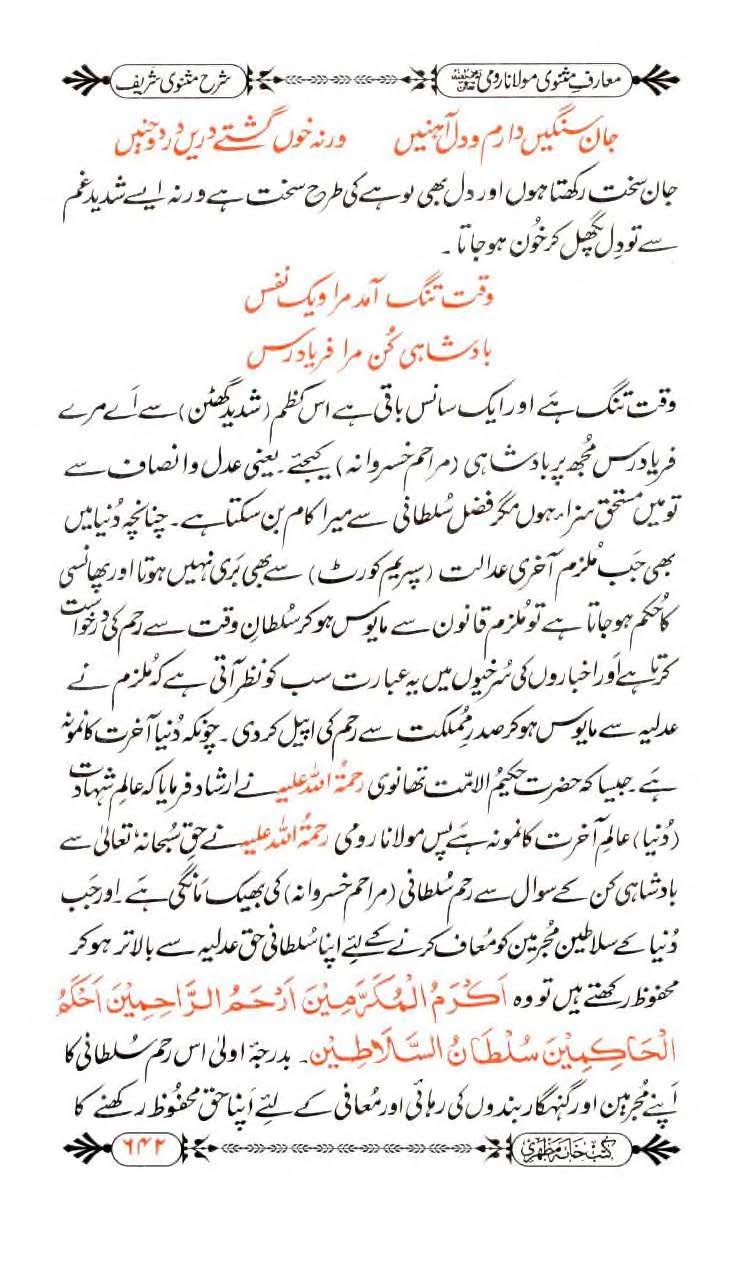 معارفِ مثنوی مولانا رومیؒ
شرح مثنوی شریف
جان سنگیں دارم و دل آہنیں ورنہ خوں گشتے دریں درد و حنیں
جان سخت رکھتا ہوں اور دل بھی لوہے کی طرح سخت ہے ورنہ ایسے شدید غم
سے تو دِل پگھل کر خُون ہو جاتا ۔
وقت تنگ آمد مرا و یک نفس
بادشاہی کُن مرا فریاد رس
وقت تنگ ہَے اور ایک سانس باقی ہے اس کظم (شدید گھٹن) سے اَے مرے
فریاد رس مُجھ پر بادشاہی (مراحم خسروانہ) کیجئے۔ یعنی عدل و انصاف سے
تو میں مستحق سزاء ہوں مگر فضل سُلطانی سے میرا کام بن سکتا ہے۔ چنانچہ دُنیا میں
بھی جَب مُلزم آخری عدالت (سپریم کورٹ) سے بھی بَری نہیں ہوتا اور پھانسی
کا حُکم ہو جاتا ہے تو مُلزم قانون سے مایوس ہو کر سُلطانِ وقت سے رحم کی درخواست
کرتا ہے اَور اخباروں کی سُرخیوں میں یہ عبارت سب کو نظر آتی ہے کہ مُلزم نے
عدلیہ سے مایوس ہو کر صدرِ مُملکت سے رحم کی اپیل کر دی ۔ چونکہ دُنیا آخرت کا نمونہ
ہَے ۔ جیسا کہ حضرت حکیمُ الامّت تھانوی رحمۃُ اللہ علیہ نے ارشاد فرمایا کہ عالمِ شہادت
(دُنیا) عالمِ آخرت کا نمونہ ہے پس مولانا رومی رحمۃُ اللہ علیہ نے حق سُبحانہٗ تعالیٰ سے
بادشاہی کن کے سوال سے رحم سُلطانی (مراحم خسروانہ) کی بھیک مانگی ہَے ۔ اور جَب
دُنیا کے سلاطین مُجرمین کو مُعاف کرنے کے لئِے اپنا سُلطانی حق عدلیہ سے بالاتر ہو کر
محفوظ رکھتے ہیں تو وہ اَکْرَمُ الْمُکَرَّمِیْنَ اَرْحَمُ الرَّاحِمِیْنَ اَحْکَمُ
الْحَاکِمِیْنَ سُلْطَانُ السَّلَاطِیْنِ۔ بدرجۂ اولیٰ اس رحم سُلطانی کا
اَپنے مُجرمین اور گنہگار بندوں کی رہائی اور مُعافی کے لئے اَپنا حق محفُوظ رکھنے کا
کتب خانہ مظہری
۶۴۲